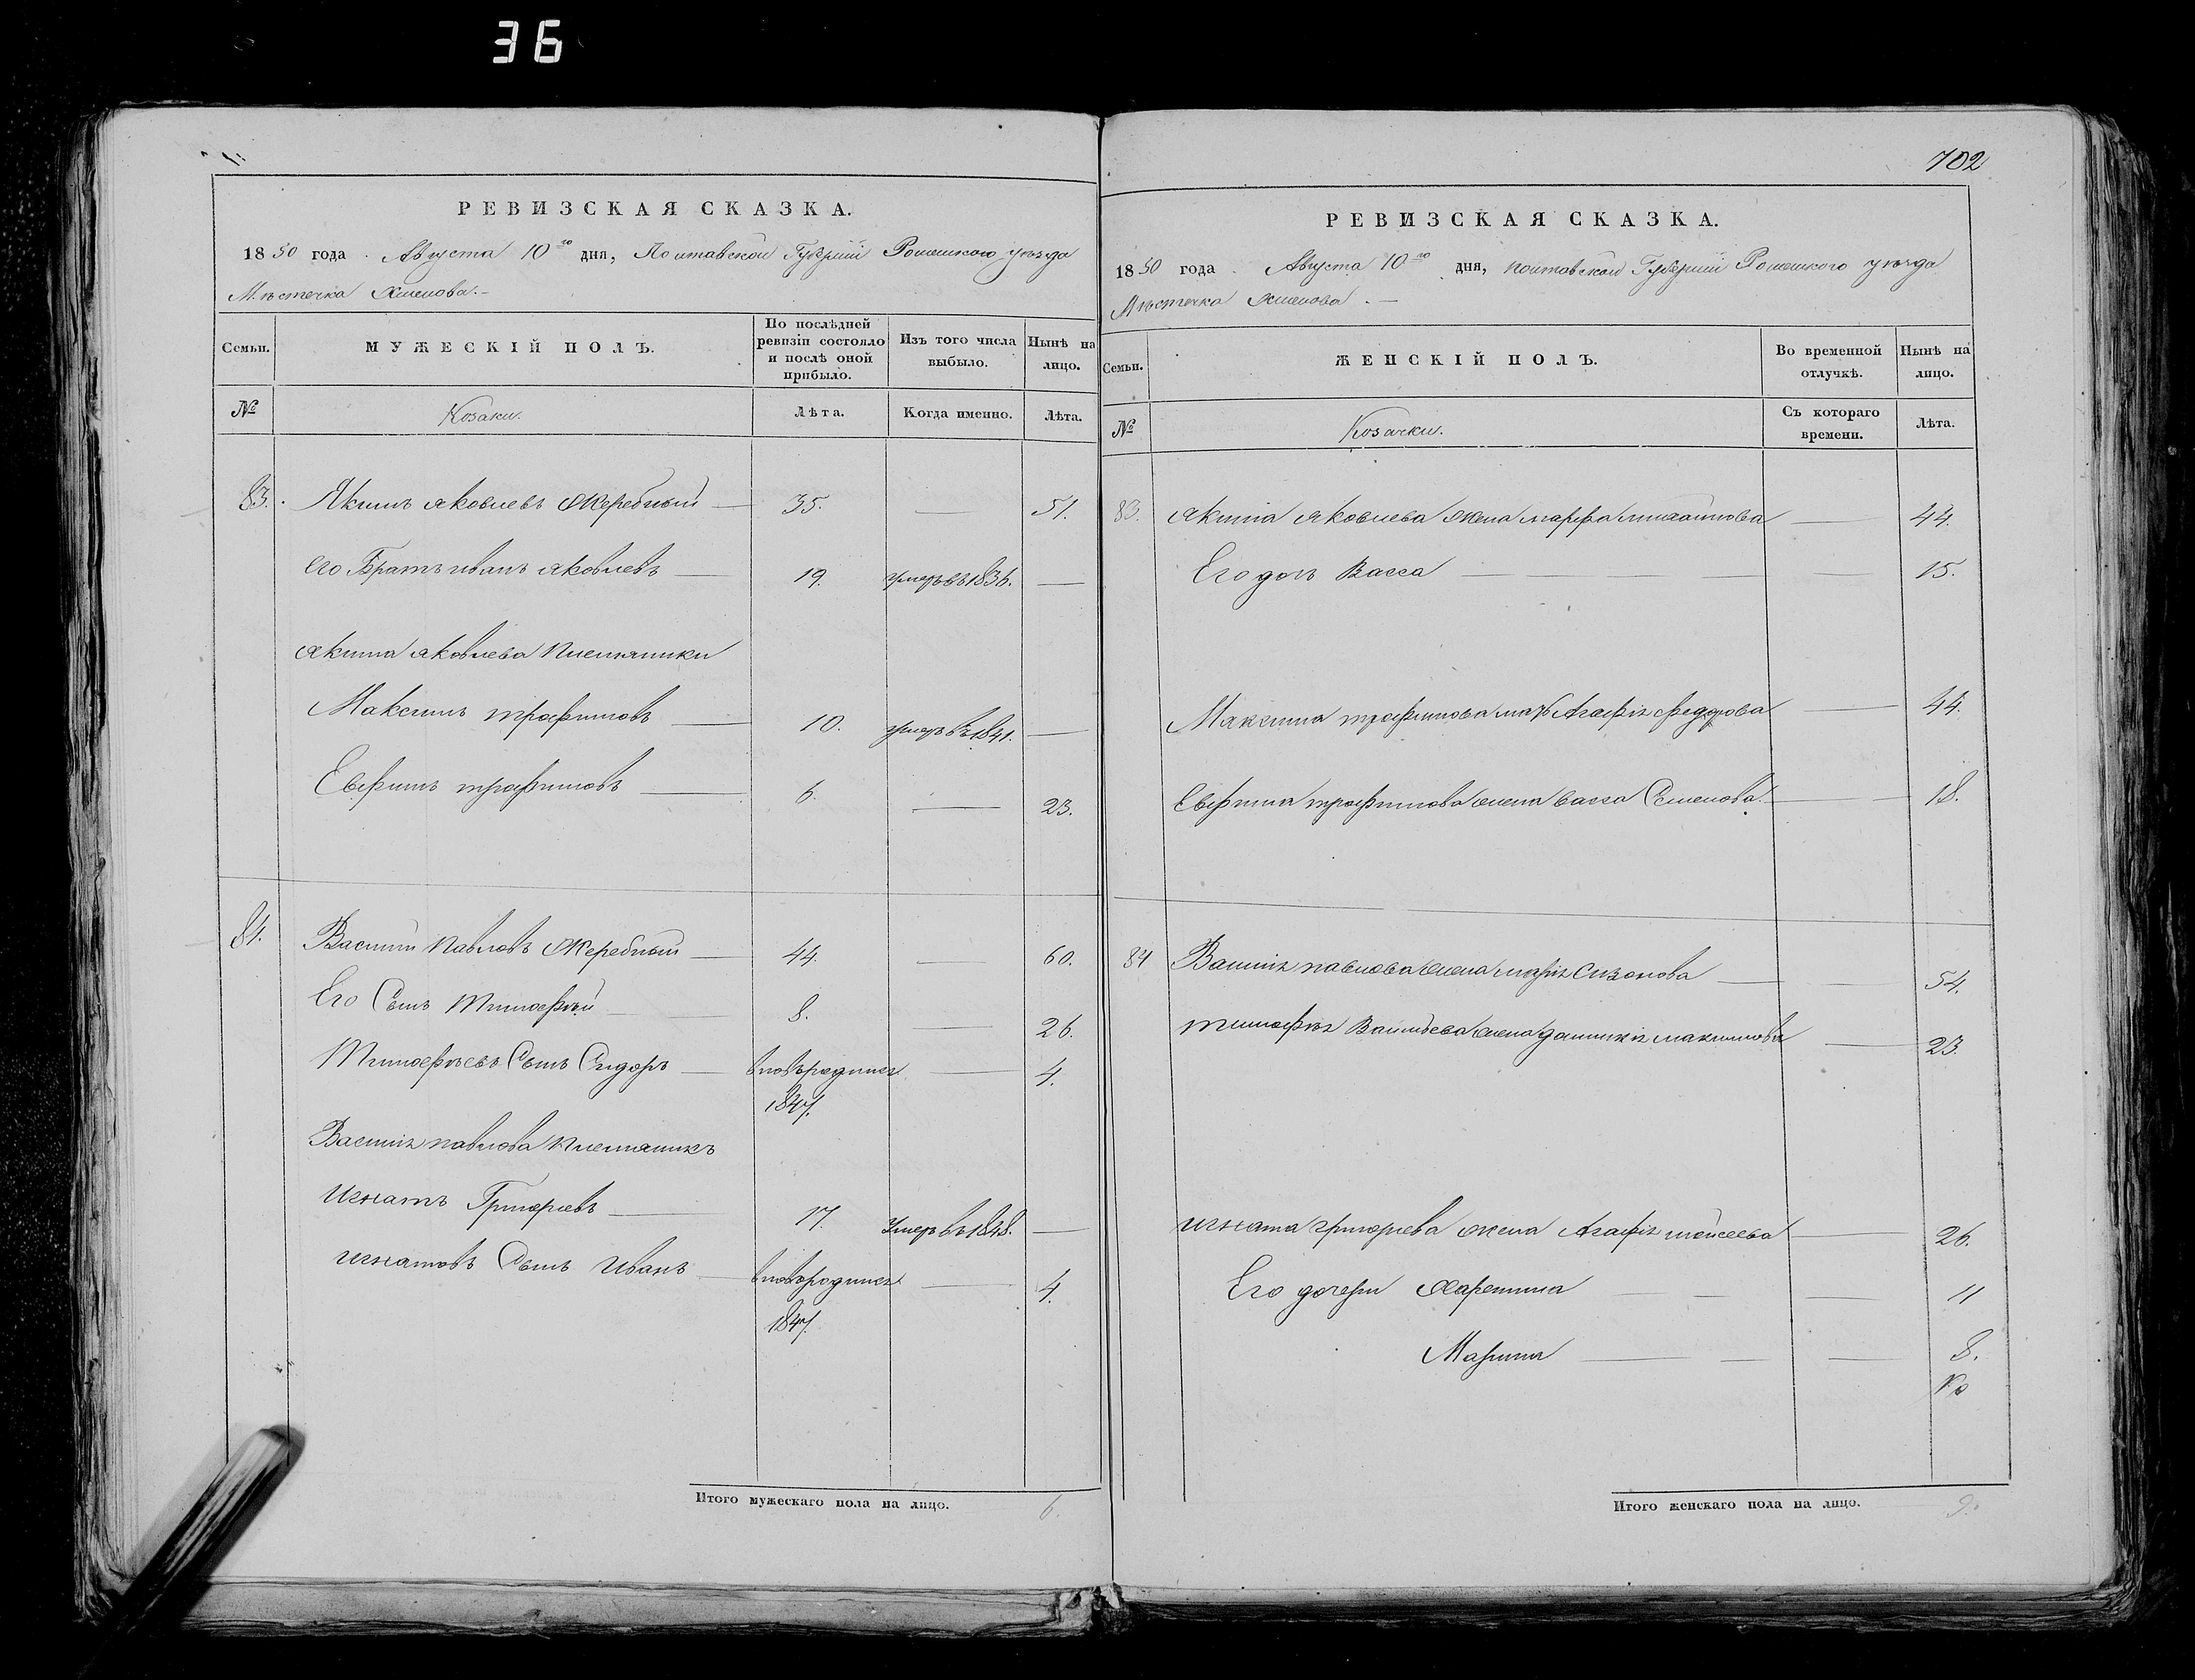 36
702
РЕВИЗСКАЯ СКАЗКА.
1850 года Августа 10го дня, Полтавской Губернии Роменского уезда
Местечка Хмелова.
Семьи. МУЖЕСКІЙ ПОЛЪ. По послѣдней ревизіи состояло и послѣ оной прибыло. Изъ того числа выбыло. Нынѣ на лицо.
№ Козаки. Лѣта. Когда именно. Лѣта.
83. Якимъ Яковлевъ Жеребный 35. — 51.
его Братъ иванъ Яковлевъ 19. умеръ въ 1836. —
Якима Яковлева Племянники
Максимъ трофимовъ 10. умеръ въ 1841. —
Евфимъ трофимовъ 6. — 23.
84. Василий Павловъ Жеребный 44. — 60.
Его Сынъ Тимофѣй 8. — 26.
Тимофѣевъ Сынъ Сидоръ вновьродился — 4.
1847.
Василія павлова Племянникъ
Игнатъ Григорьевъ 17. Умеръ въ 1848. —
игнатовъ Сынъ Иванъ вновьродился — 4.
1847.
Итого мужескаго пола на лицо. 6.
РЕВИЗСКАЯ СКАЗКА.
1850 года Августа 10го дня, полтавской Губернии Роменского уезда
Местечка Хмелова.
Семьи. ЖЕНСКІЙ ПОЛЪ. Во временной отлучкѣ. Нынѣ на лицо.
№ Козачки. Съ котораго времени. Лѣта.
83. Якима Яковлева жена марфа михайлова — 44.
Его дочь Васса 15.
Максима трофимова мать Агафія федорова — 44.
Евфима трофимова жена васса Семенова — 18.
84 Василія павлова жена марія Сизонова — 54.
тимофѣя Васильева жена домникія максимова — 23.
игната григорьева жена Агафія моисеева — 26.
Его дочери Харетина — 11
Марина — 8.
Итого женскаго пола на лицо. 9.